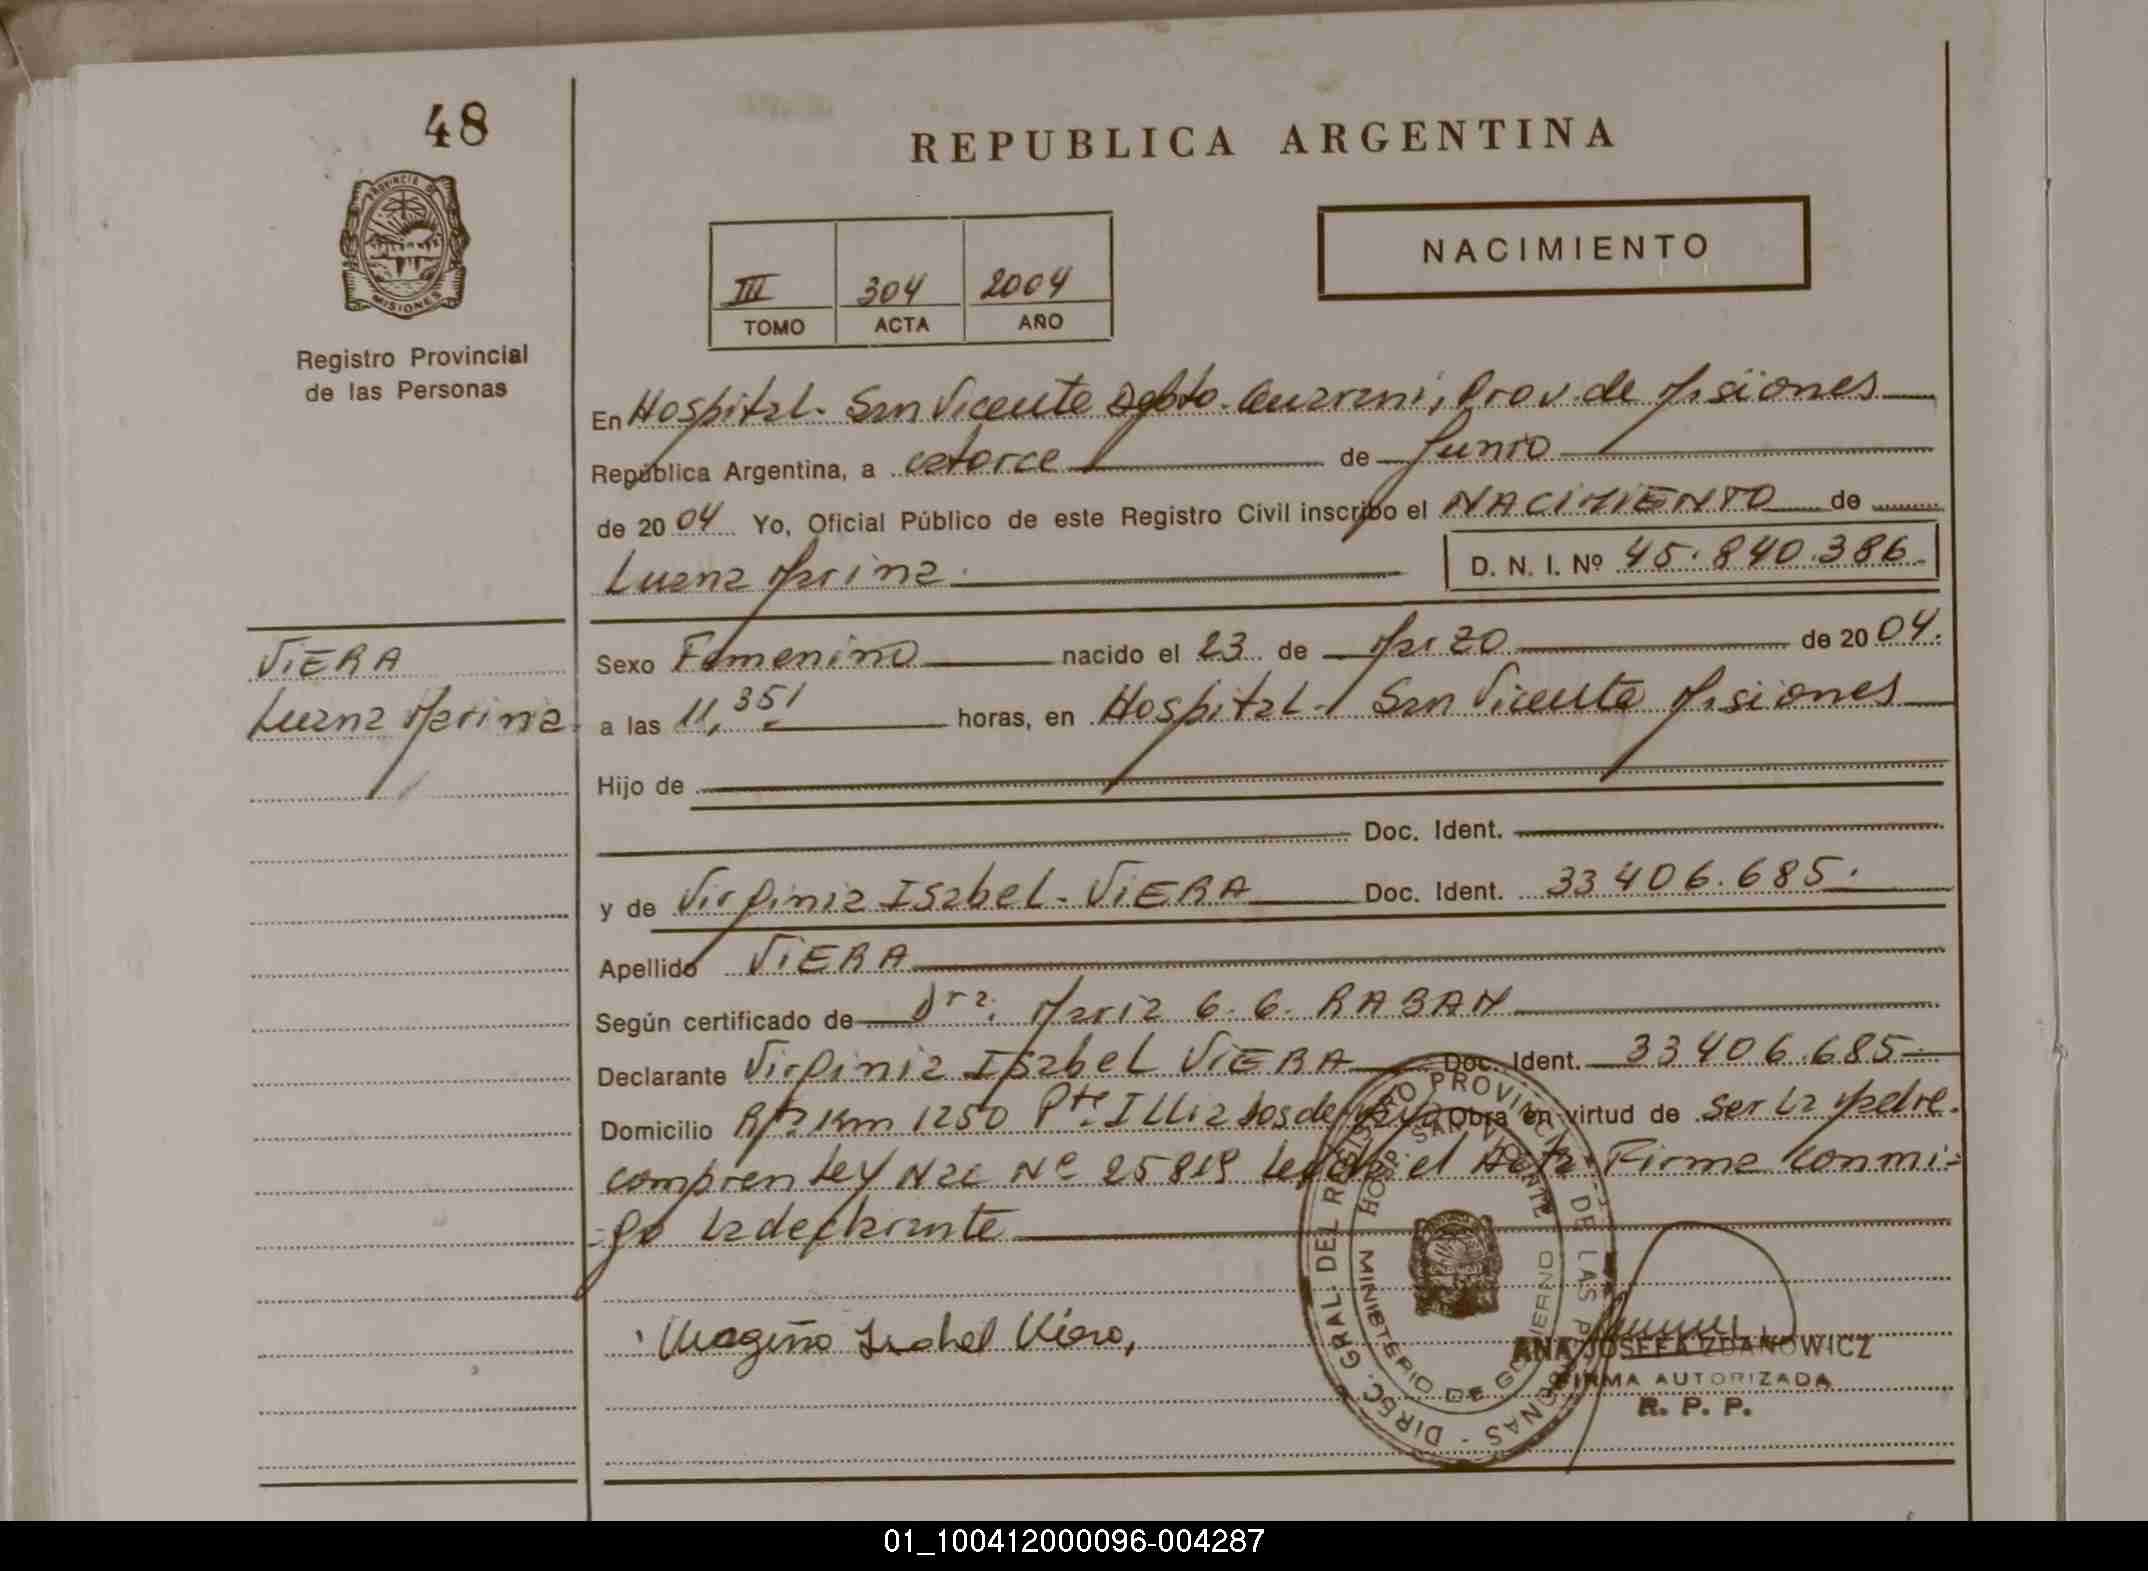 48
REPUBLICA ARGENTINA
PROVINCIA DE
MISIONES
Registro Provincial
de las Personas
NACIMIENTO
III 304 2004
TOMO ACTA AÑO
En Hospital. San Vicente Dpto. Guarani, Prov. de Misiones
República Argentina, a catorce de Junio
de 2004 Yo, Oficial Público de este Registro Civil inscribo el NACIMIENTO de
Luana Marina. D. N. I. Nº 45.840.386.
VIERA
Luana Marina
Sexo Femenino nacido el 23 de Marzo de 2004.
a las 11,35' horas, en Hospital - San Vicente Misiones
Hijo de
Doc. Ident.
y de Virginia Isabel. VIERA Doc. Ident. 33 406.685.
Apellido VIERA
Según certificado de Dra. Maria G. G. RABAN
Declarante Virginia Isabel VIERA Doc. Ident. 33406.685
Domicilio Km 1250 Pte. Illia Obra en virtud de ser la Madre.
Ley Nac Nº 25819 el Acta Firma conmi-
-go la declarante
Isabel Viera,
DIREC. GRAL. DEL REGISTRO PROVINCIAL DE LAS PERSONAS
HOSP. SAN VICENTE
MINISTERIO DE GOBIERNO
ANA JOSEFA ZDANOWICZ
FIRMA AUTORIZADA
R. P. P.
01_100412000096-004287